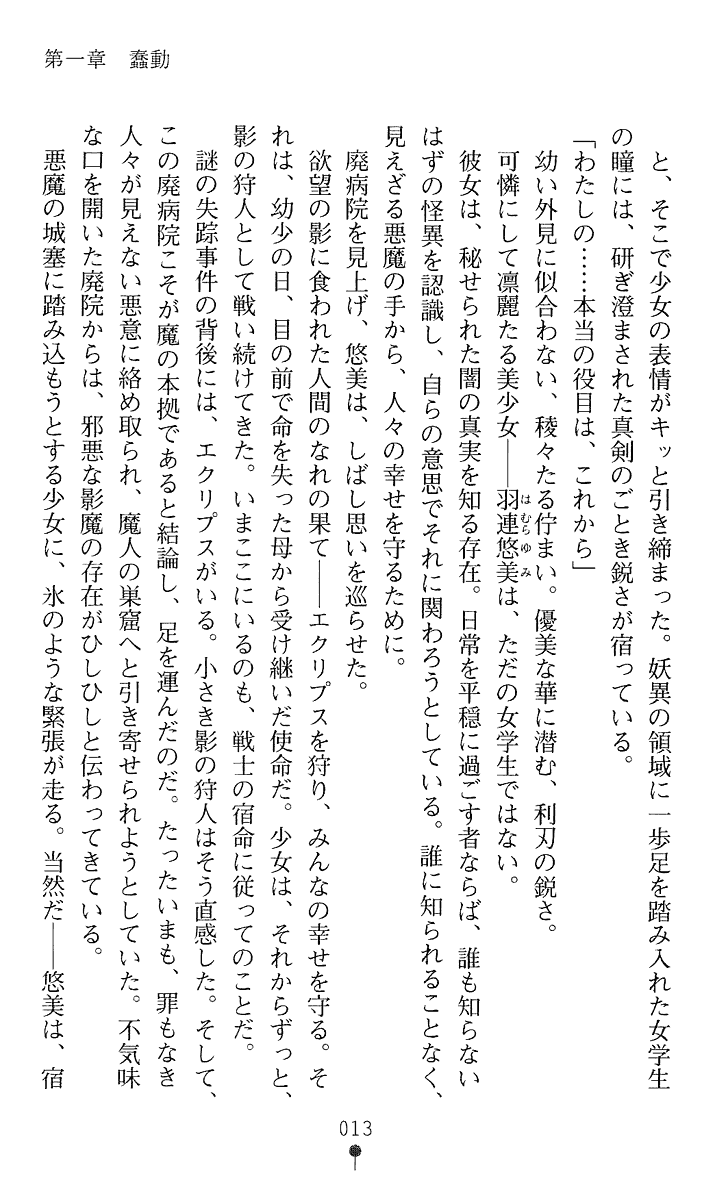 第一章　蠢動
　と、そこで少女の表情がキッと引き締まった。妖異の領域に一歩足を踏み入れた女学生
の瞳には、研ぎ澄まされた真剣のごとき鋭さが宿っている。
「わたしの……本当の役目は、これから」
　幼い外見に似合わない、稜々たる佇まい。優美な華に潜む、利刃の鋭さ。
　可憐にして凛麗たる美少女――羽連悠美は、ただの女学生ではない。
はむらゆみ
　彼女は、秘せられた闇の真実を知る存在。日常を平穏に過ごす者ならば、誰も知らない
はずの怪異を認識し、自らの意思でそれに関わろうとしている。誰に知られることなく、
見えざる悪魔の手から、人々の幸せを守るために。
　廃病院を見上げ、悠美は、しばし思いを巡らせた。
　欲望の影に食われた人間のなれの果て――エクリプスを狩り、みんなの幸せを守る。そ
れは、幼少の日、目の前で命を失った母から受け継いだ使命だ。少女は、それからずっと、
影の狩人として戦い続けてきた。いまここにいるのも、戦士の宿命に従ってのことだ。
　謎の失踪事件の背後には、エクリプスがいる。小さき影の狩人はそう直感した。そして、
この廃病院こそが魔の本拠であると結論し、足を運んだのだ。たったいまも、罪もなき
人々が見えない悪意に絡め取られ、魔人の巣窟へと引き寄せられようとしていた。不気味
な口を開いた廃院からは、邪悪な影魔の存在がひしひしと伝わってきている。
　悪魔の城塞に踏み込もうとする少女に、氷のような緊張が走る。当然だ――悠美は、宿
013